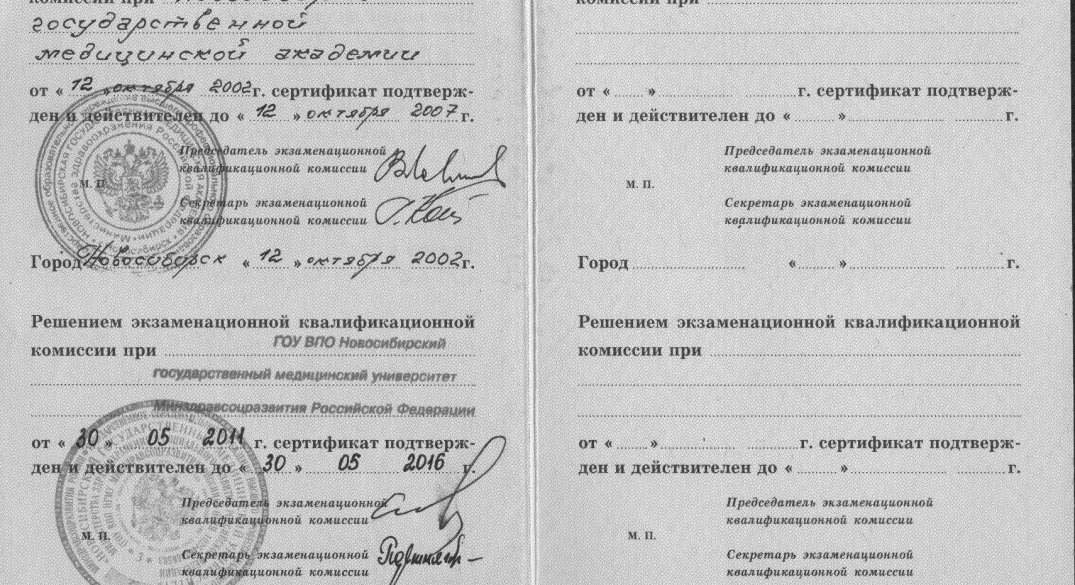 комиссии при
государственной
медицинской академии
от « 12 » октября 2002 г. сертификат подтверж-
ден и действителен до « 12 » октября 2007 г.
Председатель экзаменационной
квалификационной комиссии
М. П.
Секретарь экзаменационной
квалификационной комиссии
Город Новосибирск « 12 » октября 2002 г.
Решением экзаменационной квалификационной
комиссии при ГОУ ВПО Новосибирский
государственный медицинский университет
Минздравсоцразвития Российской Федерации
от « 30 » 05 2011 г. сертификат подтверж-
ден и действителен до « 30 » 05 2016 г.
Председатель экзаменационной
квалификационной комиссии
М. П.
Секретарь экзаменационной
квалификационной комиссии
комиссии при
от « » г. сертификат подтверж-
ден и действителен до « » г.
Председатель экзаменационной
квалификационной комиссии
М. П.
Секретарь экзаменационной
квалификационной комиссии
Город « » г.
Решением экзаменационной квалификационной
комиссии при
от « » г. сертификат подтверж-
ден и действителен до « » г.
Председатель экзаменационной
квалификационной комиссии
М. П.
Секретарь экзаменационной
квалификационной комиссии